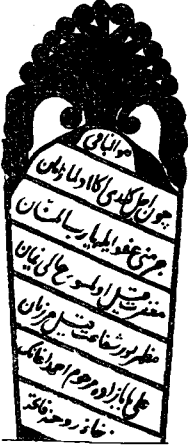 هو الباقی
چون اجل كلدی اكا اولماز امان
جرمنی عفو ایله یا رب
مغفرت قیل اولمسون حالی یمان
مظهر نور شفاعت قیل هر زمان
علی بابا زاده مرحوم احمد اغانك
روحنه فاتحه